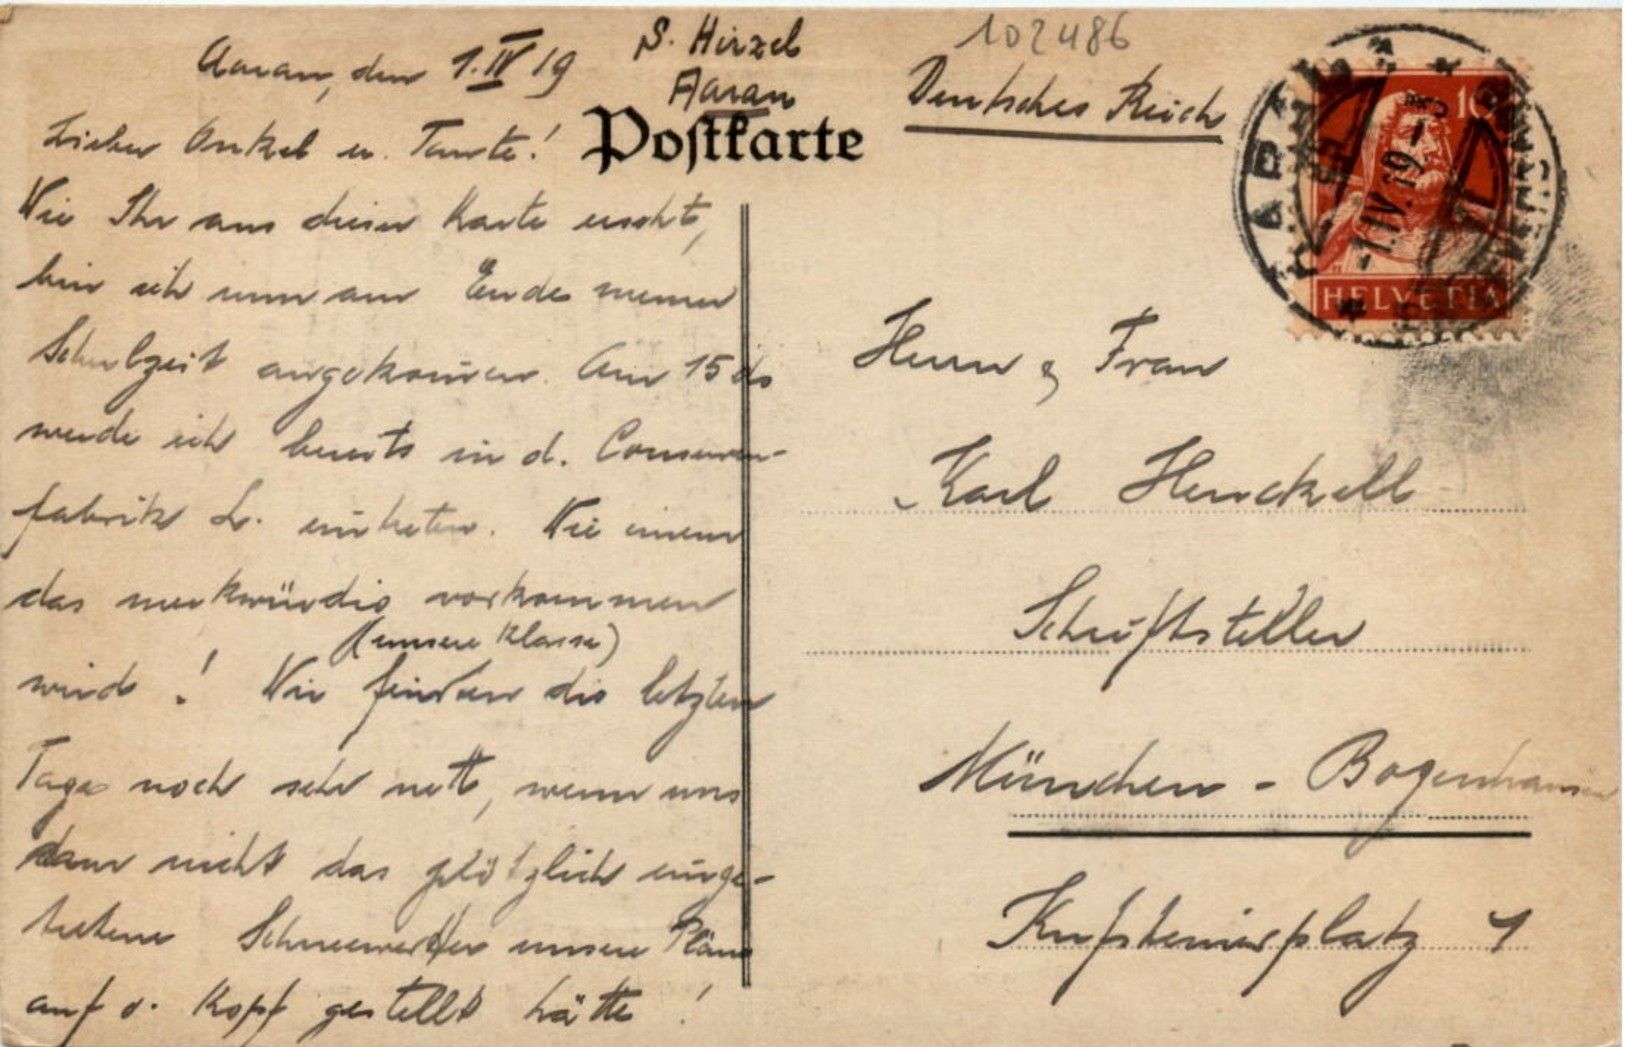 Aarau, den 1.IV 19
S. Hirzel
Aarau
102486
Deutsches Reich
Postkarte
Lieber Onkel u. Tante!
Wie Ihr aus dieser Karte erseht,
bin ich nun am Ende meiner
Schulzeit angekommen. Am 15 ds
werde ich bereits in d. Conserven-
fabrik L. eintreten. Wie einem
das merkwürdig vorkommen
(unsere Klasse)
wird! Wir finden die letzten
Tage noch sehr nett, wenn uns
dann nicht das plötzlich einge-
tretene Schneewetter unsere Pläne
auf d. Kopf gestellt hätte!
Herrn & Frau
Karl Henckell
Schriftsteller
München - Bogenhausen
Kufsteinerplatz 1
10
HELVETIA
AARAU
1.IV.19